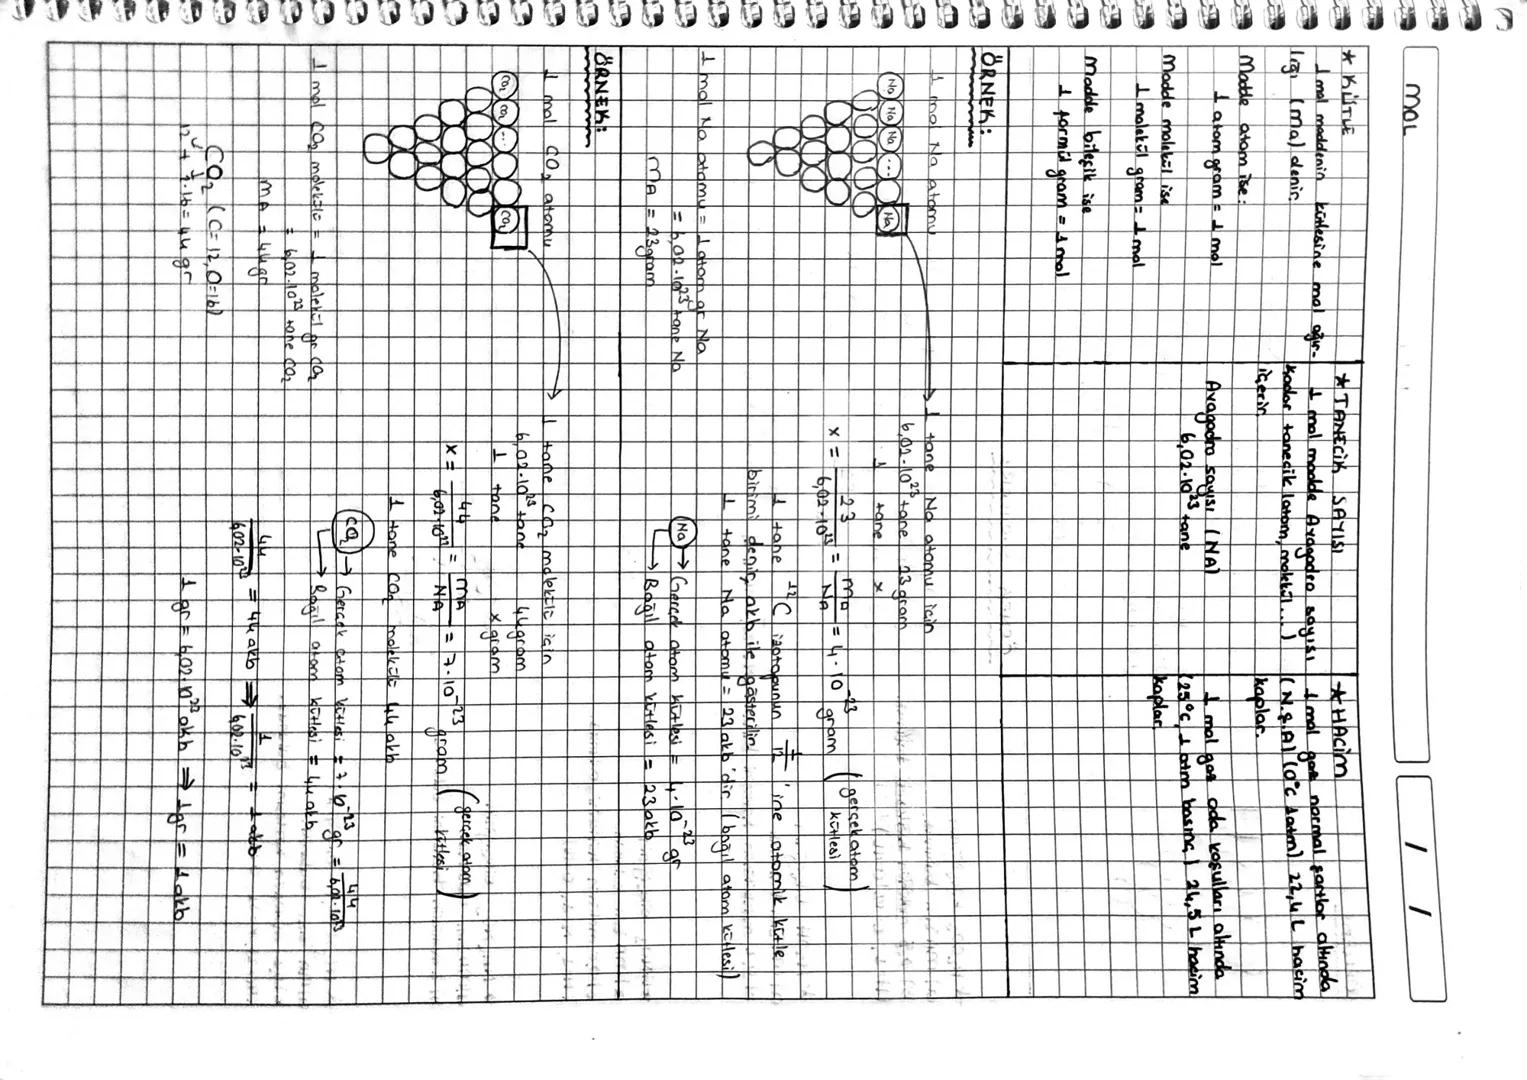 MOL
/ /
* KÜTLE
1 mol maddenin kütlesine mol ağır-
lığı (MA) denir.
Madde atom ise:
1 atomgram = 1 mol
Madde molekül ise
1 molekül gram = 1 mol
Madde bileşik ise
1 formül gram = 1 mol
* TANECİK SAYISI
1 mol madde Avagadro sayısı
kadar tanecik (atom, molekül...)
içerir.
Avagadro sayısı (NA)
6,02.10²³ tane
* HACİM
1 mol gaz normal şartlar altında
(N.Ş.A) (0°C 1atm) 22,4 L hacim
kaplar.
1 mol gaz oda koşulları altında
(25°C, 1 atm basınç) 24,5 L hacim
kaplar.
ÖRNEK:
1 mol Na atomu
Na Na Na ... Na
1 mol Na atomu = 1 atom gr Na
= 6,02.10²³ tane Na
MA = 23gram
1 tane Na atomu için
6,02.10²³ tane 23gram
1 tane x
x = 23 / 6,02.10²³ = MA / NA = 4.10⁻²³ gram (gerçek atom kütlesi)
1 tane ¹²C izotopunun 1/12 'ine atomik kütle
birimi denir, akb ile gösterilir.
1 tane Na atomu = 23 akb'dir (bağıl atom kütlesi)
Na → Gerçek atom kütlesi = 4.10⁻²³ gr
→ Bağıl atom kütlesi = 23akb
ÖRNEK:
1 mol CO₂ atomu
CO₂ CO₂ ... CO₂
1 mol CO₂ molekülü = 1 molekül gr CO₂
= 6,02.10²³ tane CO₂
MA = 44gr
CO₂ (C=12, O=16)
12 + 2.16 = 44gr
1 tane CO₂ molekülü için
6,02.10²³ tane 44gram
1 tane x gram
x = 44 / 6,02.10²³ = MA / NA = 7.10⁻²³ gram (gerçek atom kütlesi)
1 tane CO₂ molekülü 44 akb
CO₂ → Gerçek atom kütlesi = 7.10⁻²³ gr = 44 / 6,02.10²³
→ Bağıl atom kütlesi = 44 akb
44 / 6,02.10²³ = 44 akb ⇒ 1 / 6,02.10²³ = 1 akb
1 gr = 6,02.10²³ akb ⇒ 1gr = 1akb